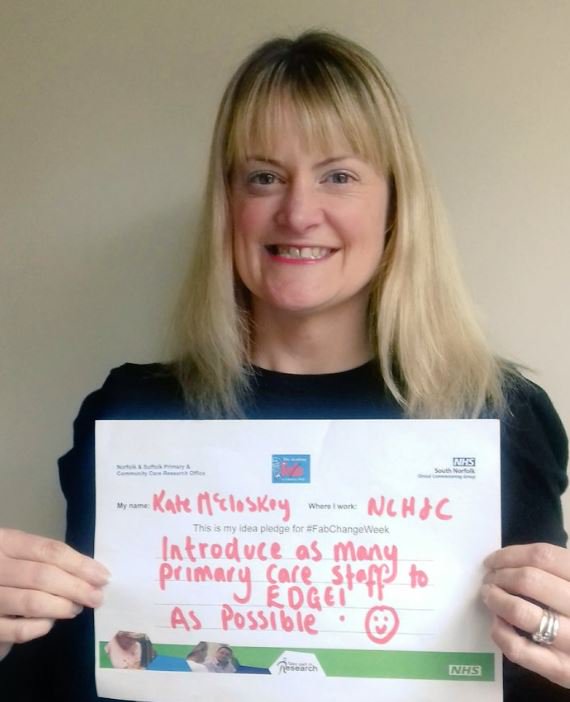 Norfolk & Suffolk Primary &
Community Care Research Office
NHS
South Norfolk
Clinical Commissioning Group
My name: Kate McCloskey Where I work: NCH&C
This is my idea pledge for #FabChangeWeek
Introduce as many
primary care staff to
EDGE!
As Possible.
Research
NHS